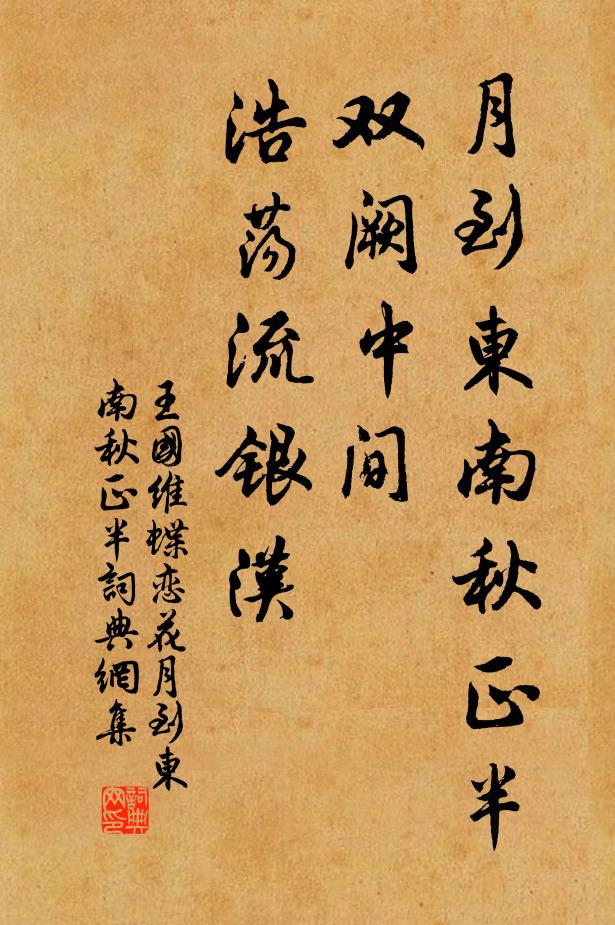 月到東南秋正半
双阙中間
浩荡流银漢
王國维蝶恋花月到東
南秋正半詞典網集
詞典
网印